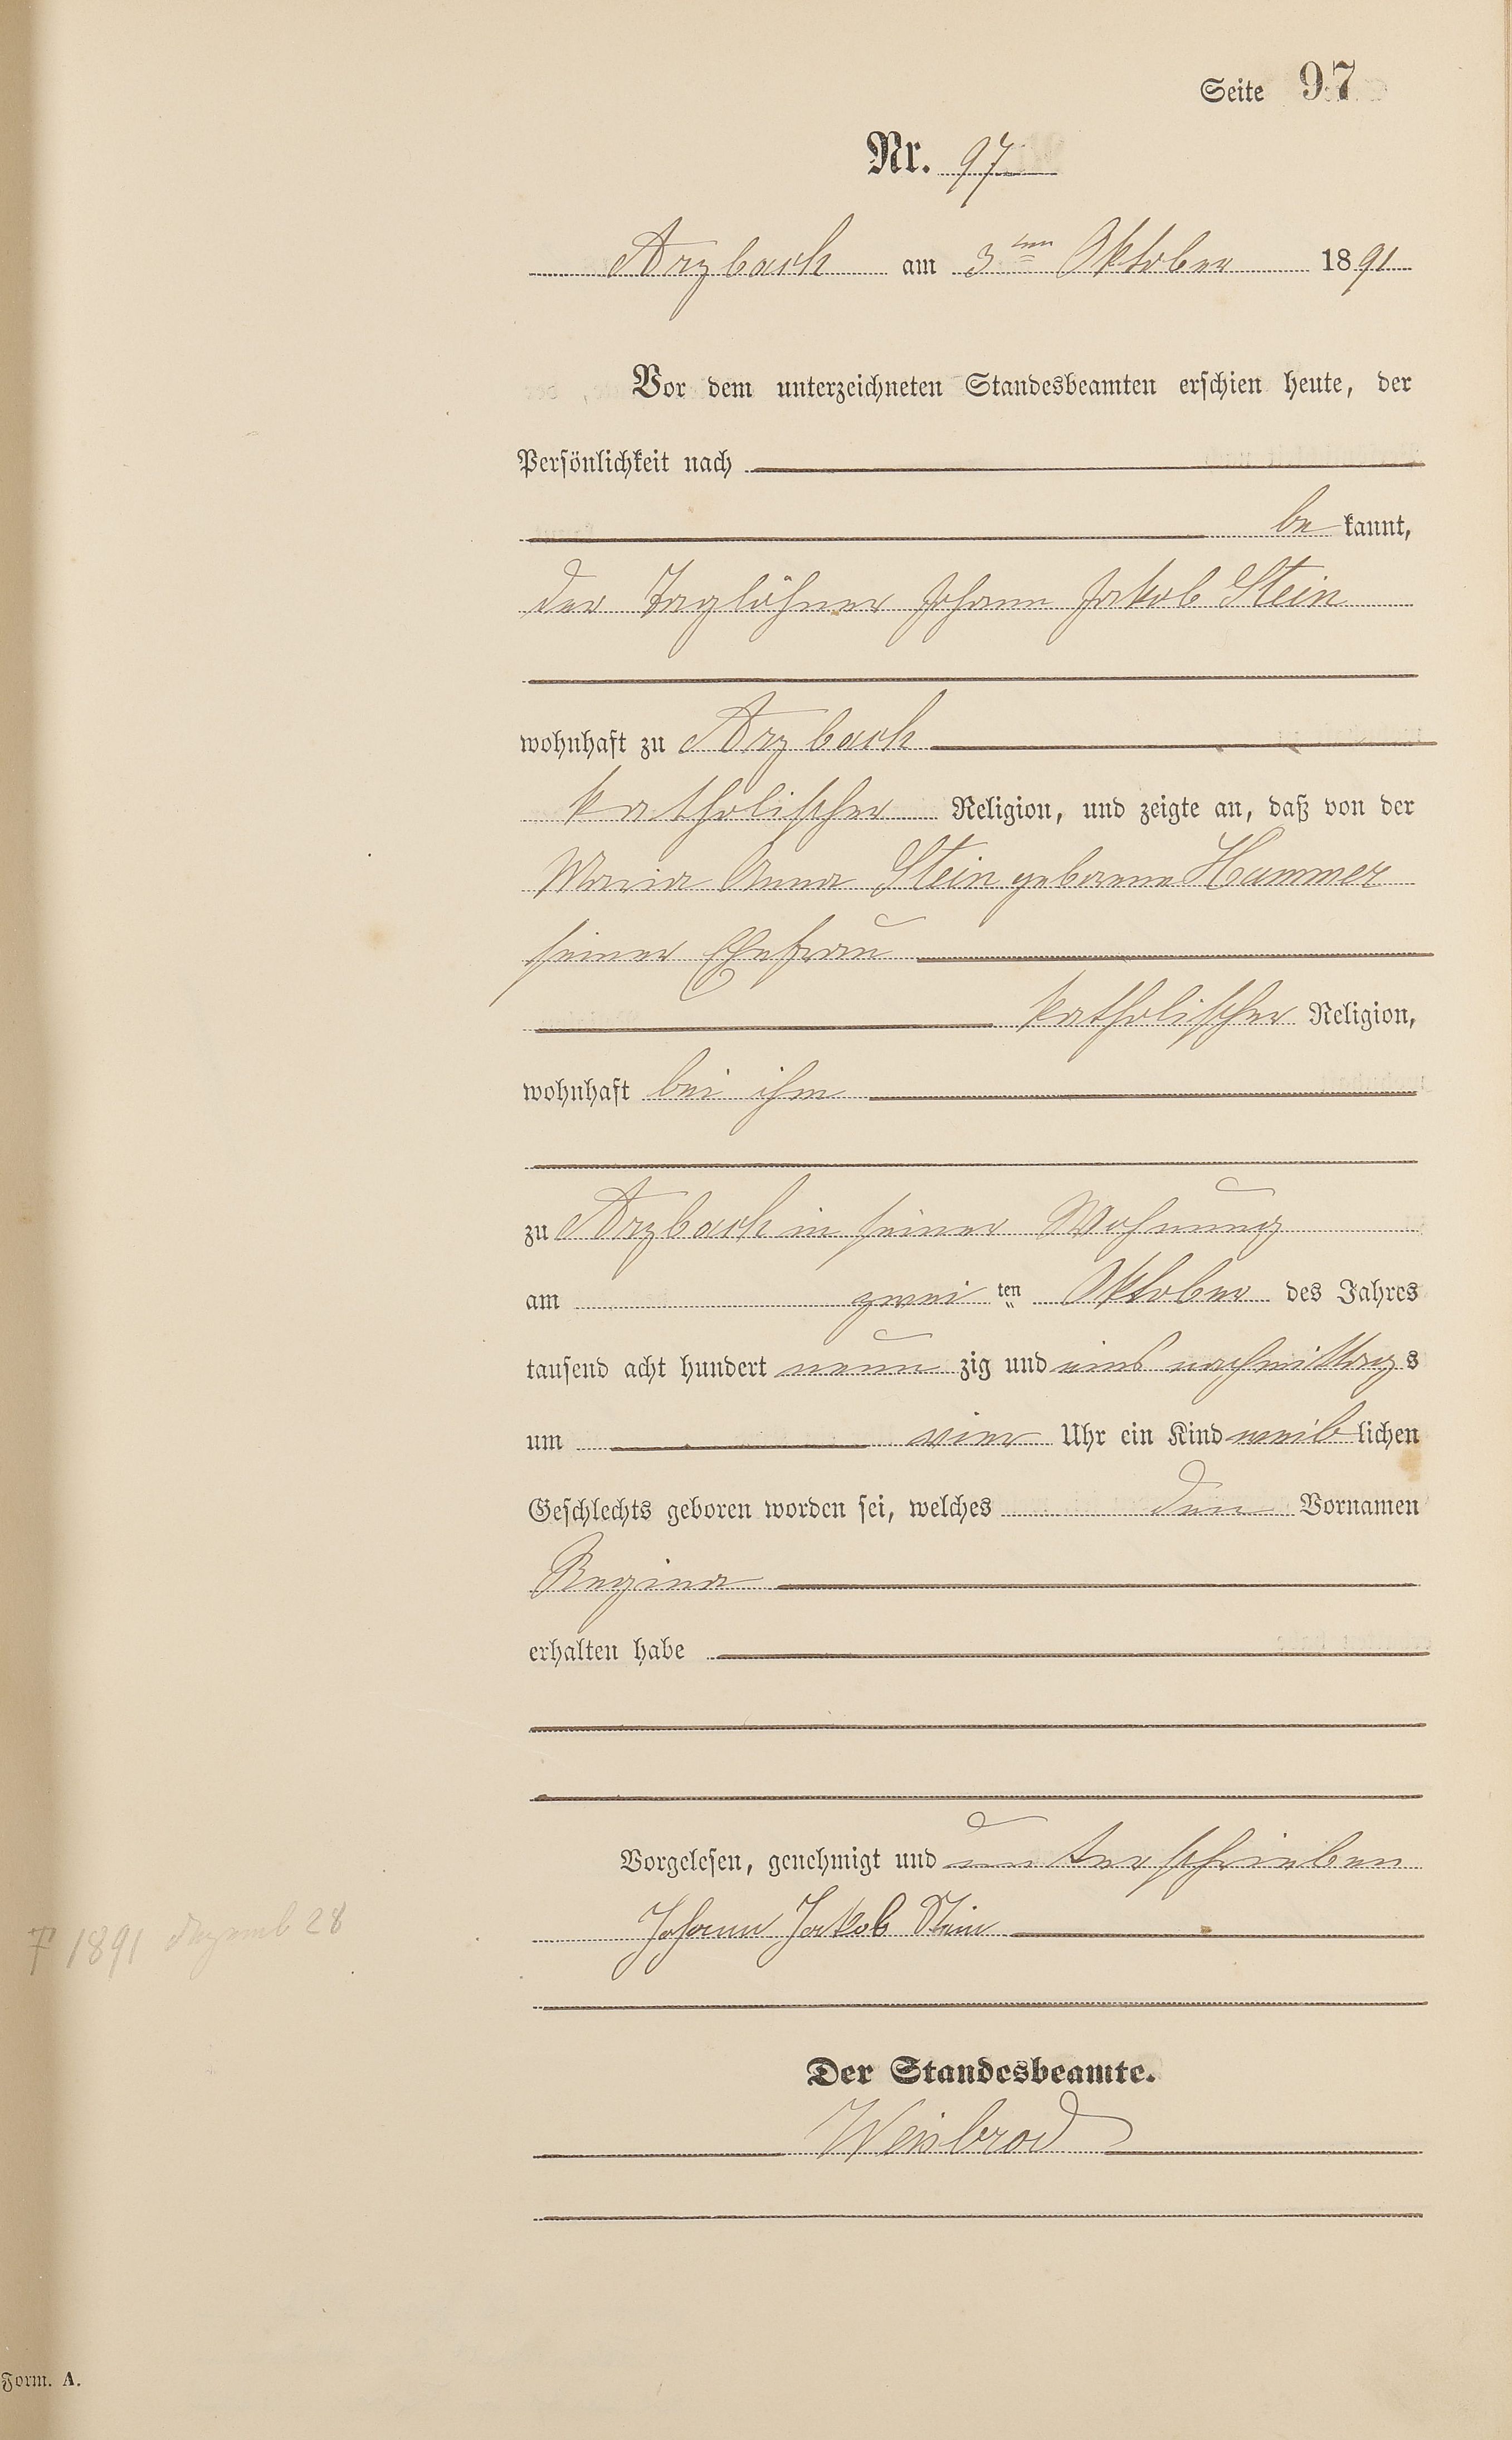 Seite 97
Nr. 97
Arzbach am 3ten Oktober 1891
Vor dem unterzeichneten Standesbeamten erschien heute, der
Persönlichkeit nach
be kannt,
der Taglöhner Johann Jakob Stein
wohnhaft zu Arzbach
katholischer Religion, und zeigte an, daß von der
Maria Anna Stein geborene Hammer
seiner Ehefrau
katholischer Religion,
wohnhaft bei ihm
zu Arzbach in seiner Wohnung
am zwei ten Oktober des Jahres
tausend acht hundert neun zig und eins nachmittags
um vier Uhr ein Kind weiblichen
Geschlechts geboren worden sei, welches den Vornamen
Regina
erhalten habe
Vorgelesen, genehmigt und unterschrieben
Johann Jakob Stein
† 1891 Dezemb 28
Der Standesbeamte.
Weisbrod
Form. A.